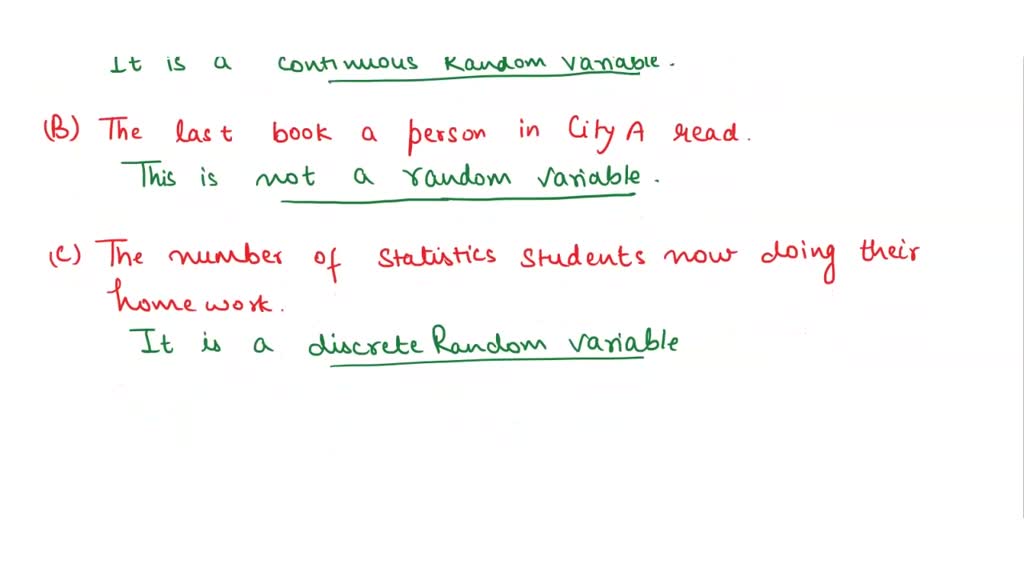 It is a continuous Random variable.
(B) The last book a person in City A read.
This is not a random variable.
(C) The number of statistics students now doing their
homework.
It is a discrete Random variable